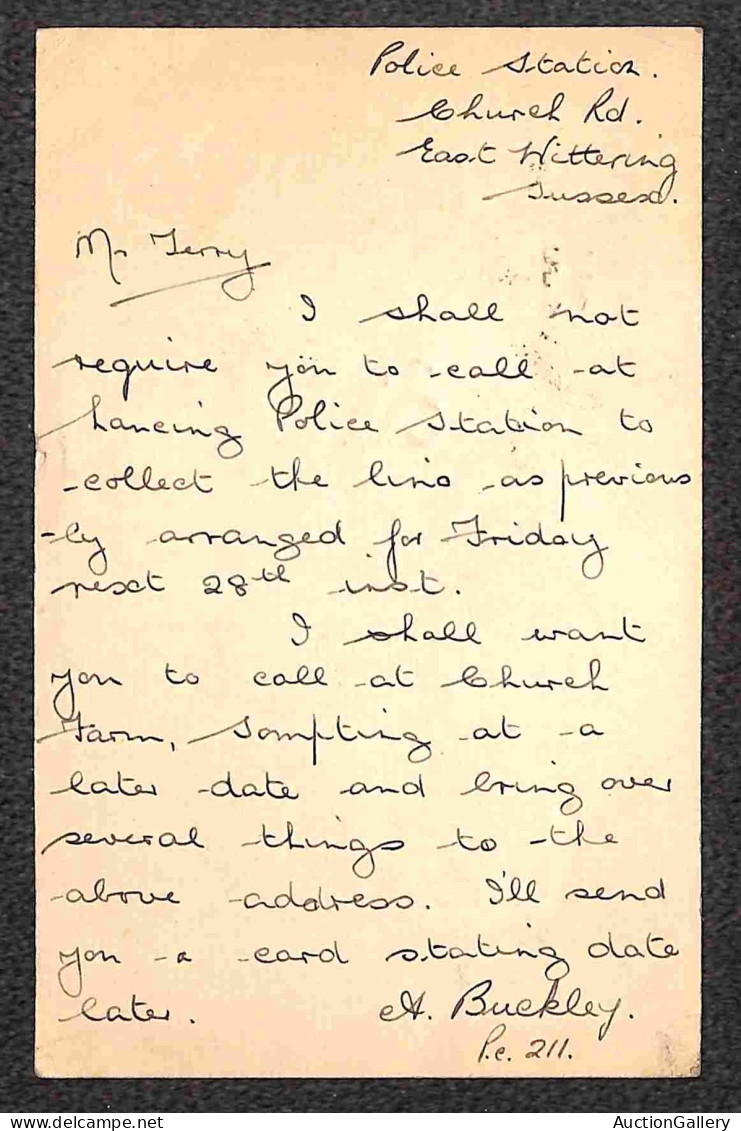 Police Station.
Church Rd.
East Wittering
Sussex.
Mr Terry
I shall not
require you to call at
Lancing Police Station to
collect the lino as previous
-ly arranged for Friday
next 28th inst.
I shall want
you to call at Church
Farm, Sompting at a
later date and bring over
several things to the
above address. I'll send
you a card stating date
later. A. Buckley.
P.c. 211.
AuctionGallery